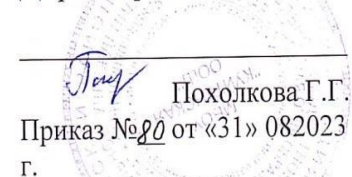 Похолкова Г.Г.
Приказ №80 от «31» 082023
г.